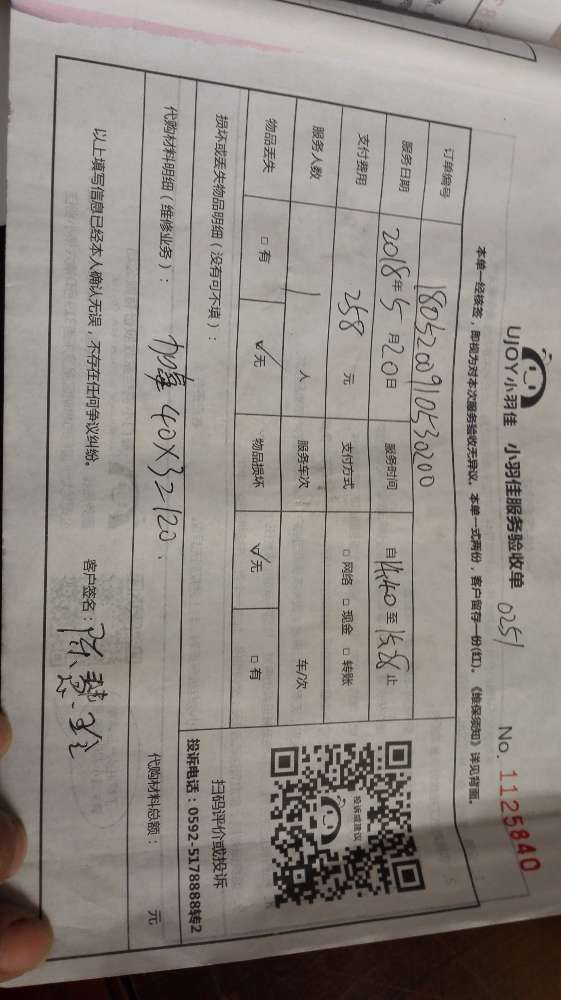 UJOY小羽佳 小羽佳服务验收单 0251 No. 1125840
本单一经核签，即视为对本次服务验收无异议。本单一式两份，客户留存一份(红)。《维保须知》详见背面。
订单编号 1805200910530200
服务日期 2018年5月20日 服务时间 自14:40至15:28止
支付费用 258元 支付方式 □网络 □现金 □转账
服务人数 1人 服务车次 车/次
物品丢失 □有 ☑无 物品损坏 ☑无 □有
投诉或建议
扫码评价或投诉
投诉电话：0592-5178888转2
损坏或丢失物品明细（没有可不填）：
代购材料明细（维修业务）： 40×3=120. 代购材料总额： 元
以上填写信息已经本人确认无误，不存在任何争议纠纷。 客户签名：陈慧玲